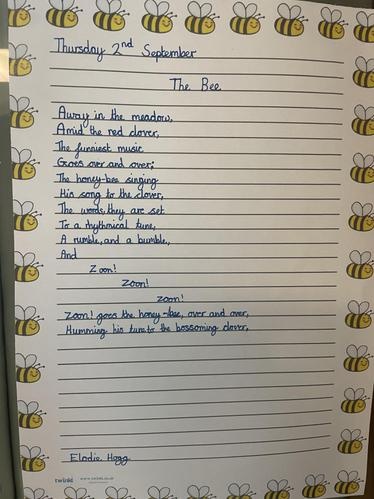 Thursday 2nd September
The Bee.
Away in the meadow,
Amid the red clover,
The funniest music
Goes over and over;
The honey-bee singing
His song to the clover,
The words, they are set
To a rhythmical tune,
A rumble, and a bumble,
And
Zoon!
Zoon!
zoon!
Zoon! goes the honey-bee, over and over,
Humming his tune to the bossoming clover,
Elodie Hogg
twinkl www.twinkl.co.uk